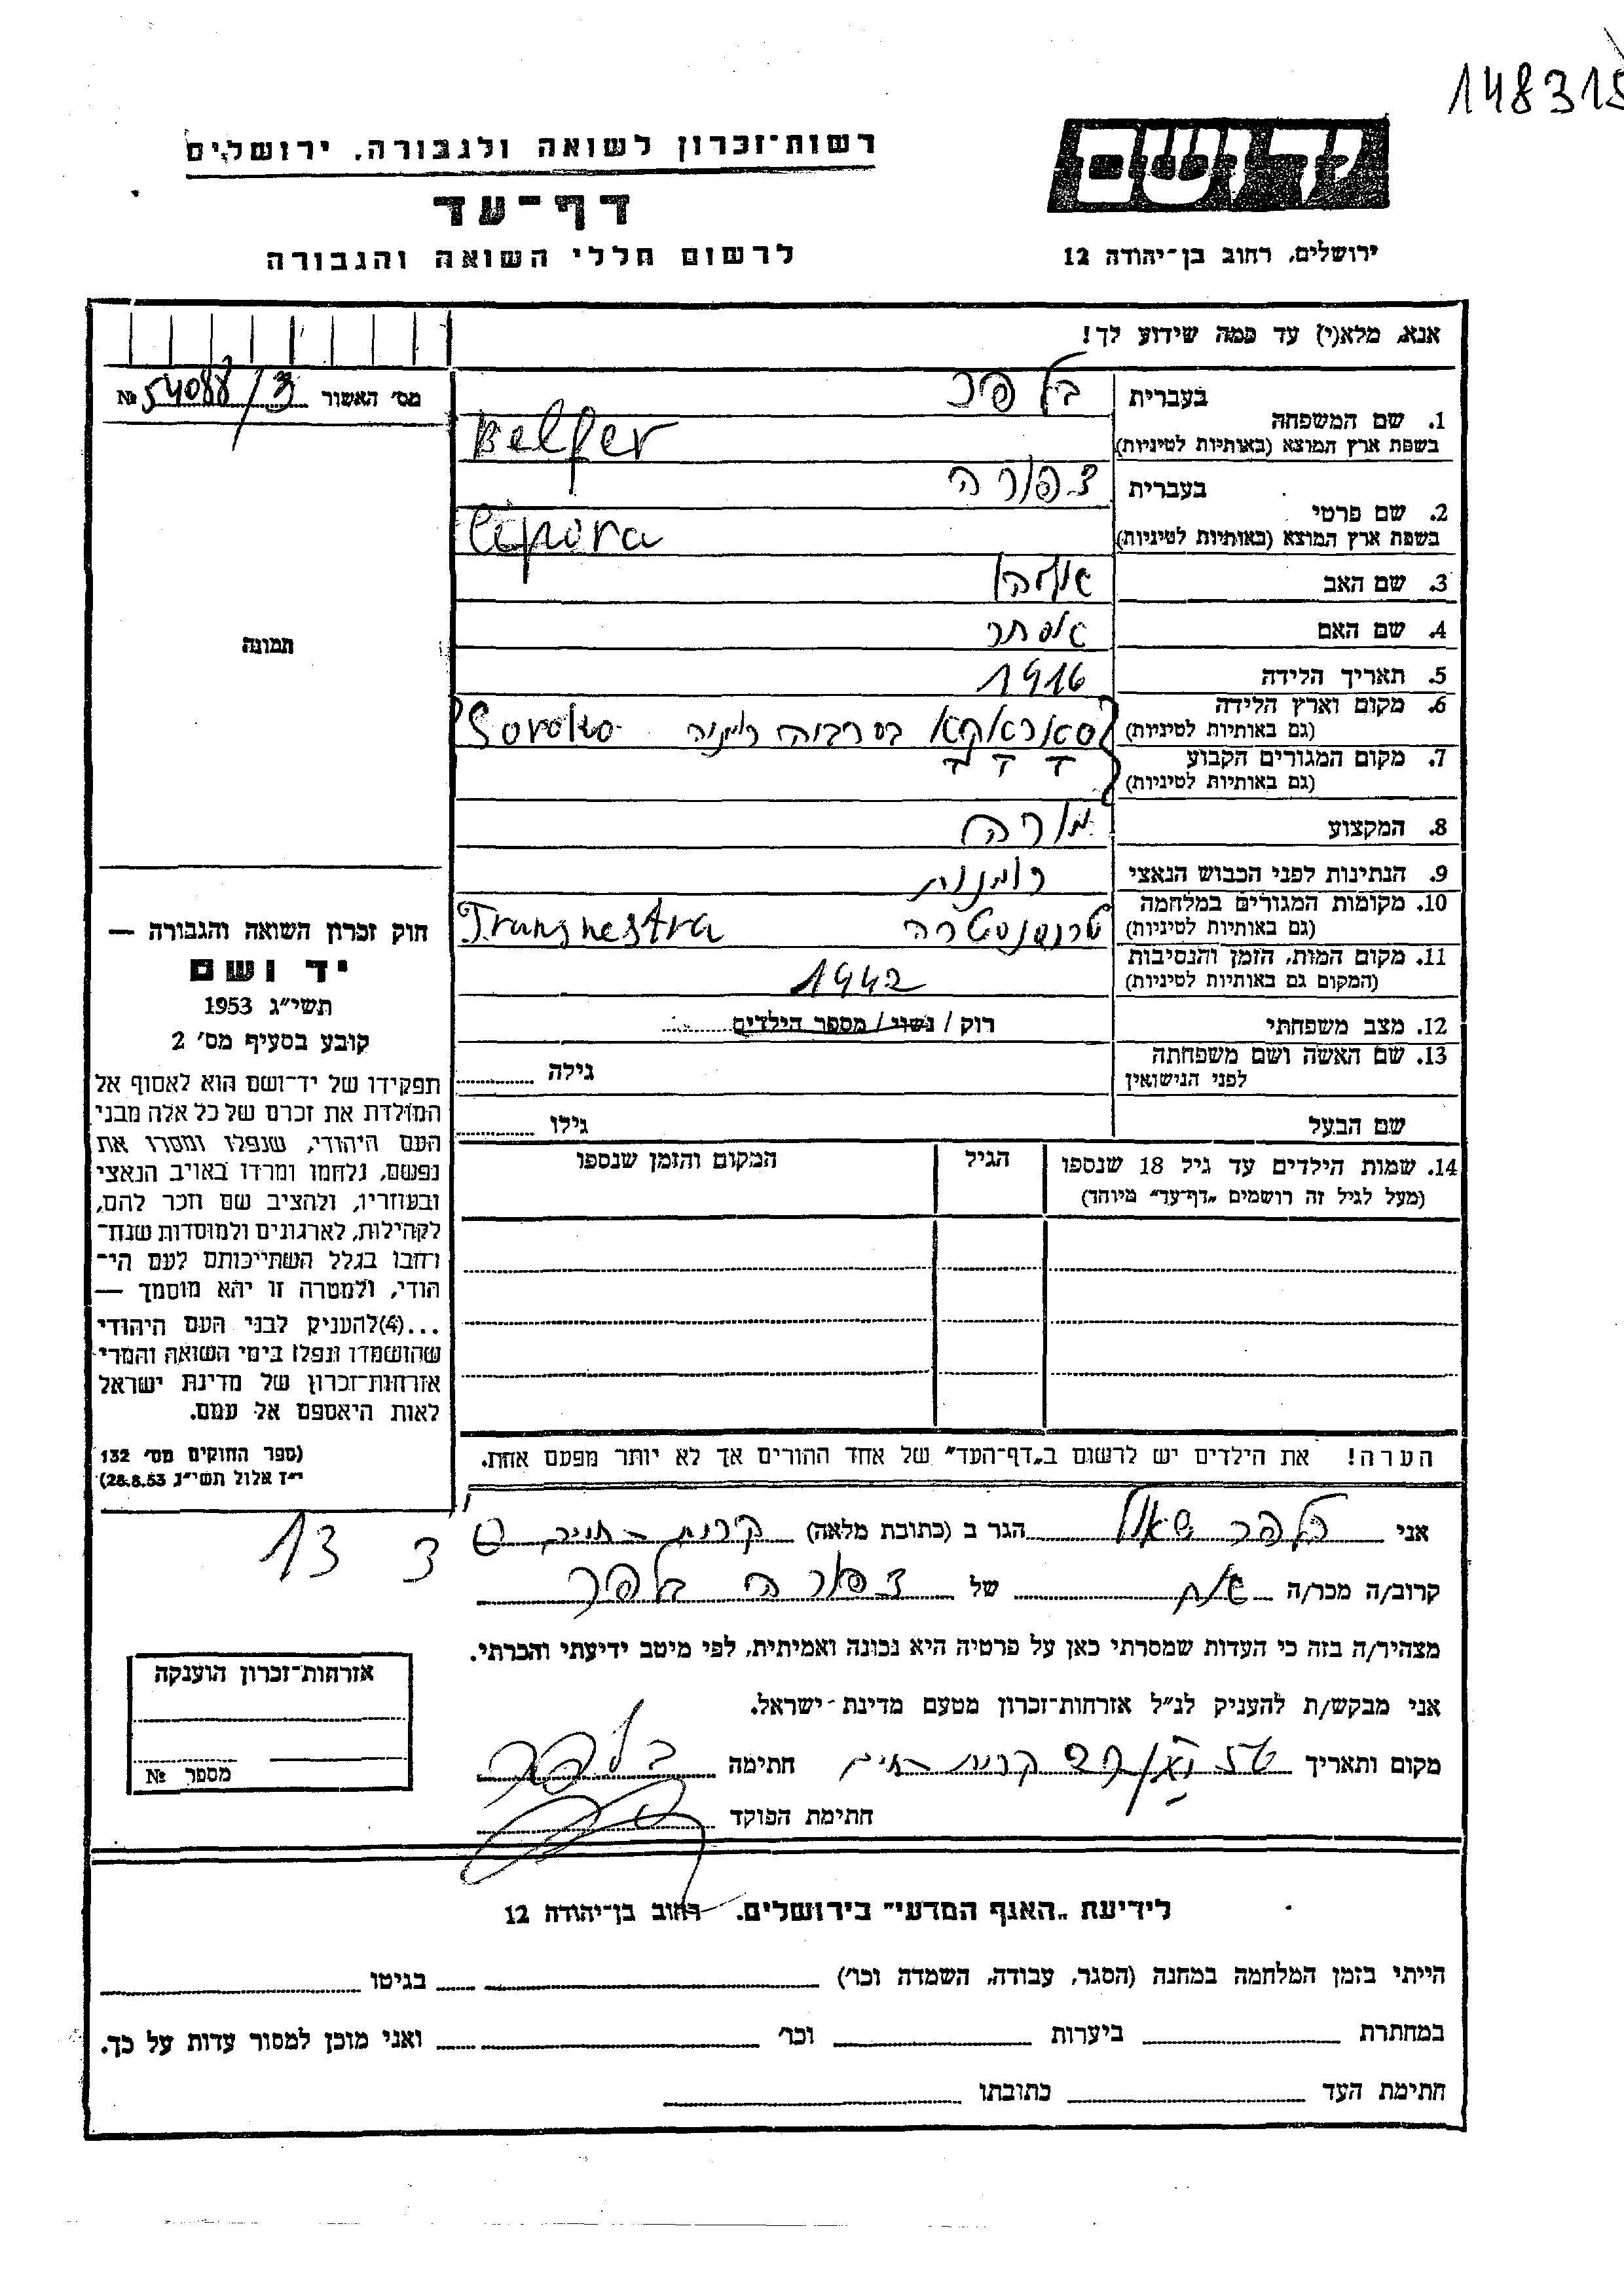 148315
רשות־זכרון לשואה ולגבורה, ירושלים
יד ושם
דף־עד
לרשום חללי השואה והגבורה
ירושלים, רחוב בן־יהודה 12
אנא, מלא(י) עד כמה שידוע לך!
מס׳ האשור № 54088/3
1. שם המשפחה בעברית בלפר
בשפת ארץ המוצא (באותיות לטיניות) Belfer
2. שם פרטי בעברית צפורה
בשפת ארץ המוצא (באותיות לטיניות) Cipora
3. שם האב
4. שם האם אסתר
5. תאריך הלידה 1916
6. מקום וארץ הלידה
(גם באותיות לטיניות) סאראקא בסרביה רומניה Soroko
7. מקום המגורים הקבוע
(גם באותיות לטיניות)
8. המקצוע מורה
9. הנתינות לפני הכבוש הנאצי רומנית
10. מקומות המגורים במלחמה
(גם באותיות לטיניות) טרנסנסטרה Transnestra
11. מקום המות, הזמן והנסיבות
(המקום גם באותיות לטיניות) 1942
12. מצב משפחתי רוק / נשוי / מספר הילדים
13. שם האשה ושם משפחתה
לפני הנישואין גילה
שם הבעל גילו
14. שמות הילדים עד גיל 18 שנספו הגיל המקום והזמן שנספו
(מעל לגיל זה רושמים „דף־עד״ מיוחד)
הערה! את הילדים יש לרשום ב„דף־העד״ של אחד ההורים אך לא יותר מפעם אחת.
תמונה
חוק זכרון השואה והגבורה —
יד ושם
תשי״ג 1953
קובע בסעיף מס׳ 2
תפקידו של יד־ושם הוא לאסוף אל
המולדת את זכרם של כל אלה מבני
העם היהודי, שנפלו ומסרו את
נפשם, נלחמו ומרדו באויב הנאצי
ובעוזריו, ולהציב שם וזכר להם,
לקהילות, לארגונים ולמוסדות שנח־
רחבו בגלל השתייכותם לעם הי־
הודי, ולמטרה זו יהא מוסמך —
...(4)להעניק לבני העם היהודי
שהושמדו ונפלו בימי השואה והמרי
אזרחות־זכרון של מדינת ישראל
לאות היאספם אל עמם.
(ספר החוקים מס׳ 132
י״ז אלול תשי״ג 28.8.53)
אני בלפר שאול הגר ב (כתובת מלאה) קרית־חיים
3 13
קרוב/ה מכר/ה אח של צפורה בלפר
מצהיר/ה בזה כי העדות שמסרתי כאן על פרטיה היא נכונה ואמיתית, לפי מיטב ידיעתי והכרתי.
אני מבקש/ת להעניק לנ״ל אזרחות־זכרון מטעם מדינת־ישראל.
מקום ותאריך קרית חיים חתימה בלפר
חתימת הפוקד
אזרחות־זכרון הוענקה
מספר №
לידיעת „האגף המדעי״ בירושלים. רחוב בן־יהודה 12
הייתי בזמן המלחמה במחנה (הסגר, עבודה, השמדה וכו׳) בגיטו
במחתרת ביערות וכו׳ ואני מוכן למסור עדות על כך.
חתימת העד כתובתו